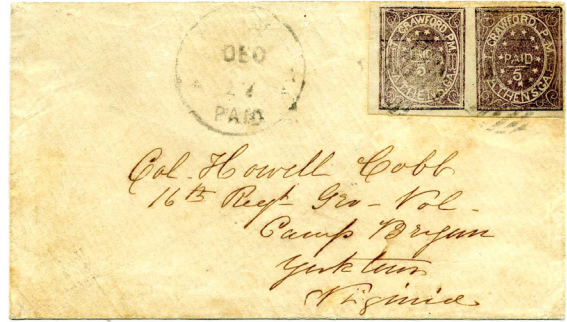 T. CRAWFORD, P.M. PAID 5 ATHENS, GA.
T. CRAWFORD, P.M. PAID 5 ATHENS, GA.
DEC
PAID
Col. Howell Cobb
16th Regt Geo - Vol -
Camp Bryan
Yorktown
Virginia